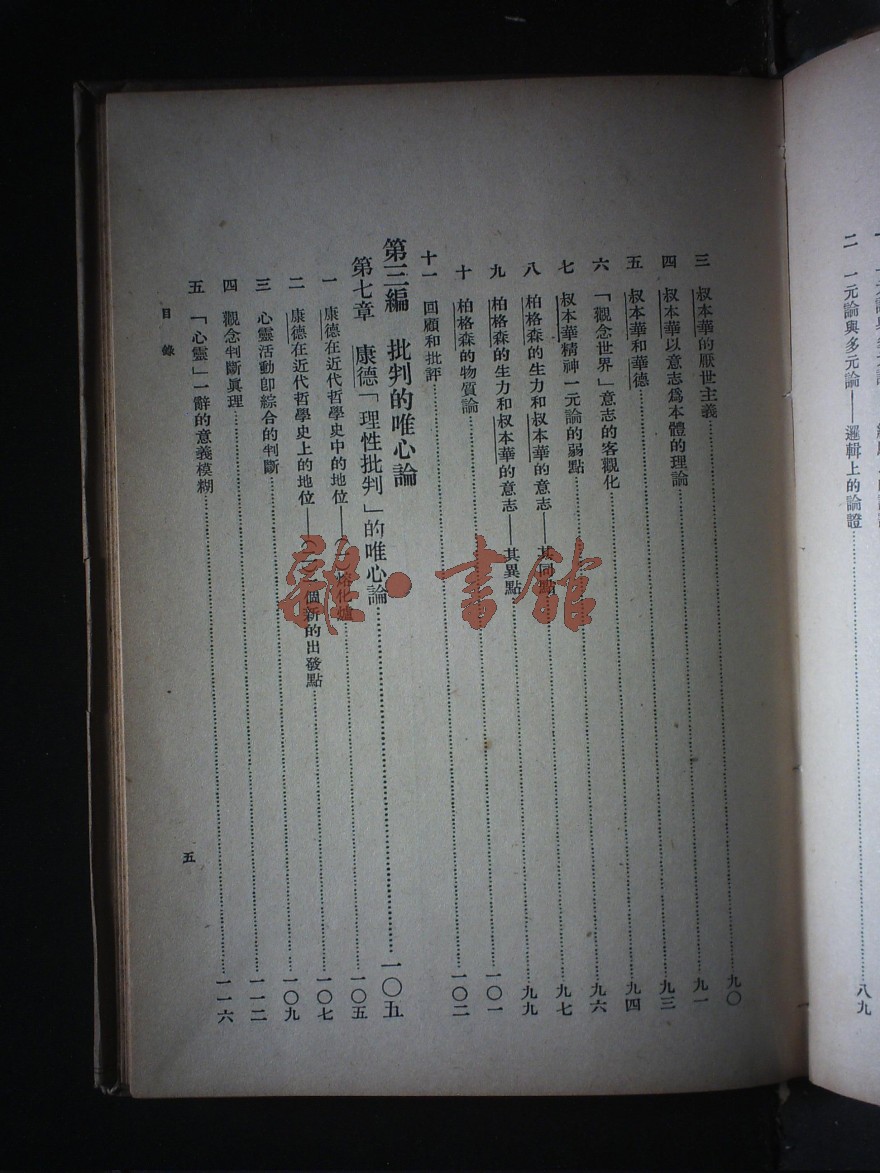 二　一元論與多元論——邏輯上的論證……八九
三　叔本華的厭世主義……九〇
四　叔本華以意志爲本體的理論……九一
五　叔本華和華德……九三
六　「觀念世界」意志的客觀化……九四
七　叔本華精神一元論的弱點……九六
八　柏格森的生力和叔本華的意志——其同點……九七
九　柏格森的生力和叔本華的意志——其異點……九九
十　柏格森的物質論……一〇一
十一　回顧和批評……一〇二
第三編　批判的唯心論
第七章　康德「理性批判」的唯心論……一〇五
一　康德在近代哲學史中的地位——一熔化爐……一〇五
二　康德在近代哲學史上的地位——一個新的出發點……一〇七
三　心靈活動卽綜合的判斷……一〇九
四　觀念判斷眞理……一一二
五　「心靈」一辭的意義模糊……一一六
目錄
五
雜·書館